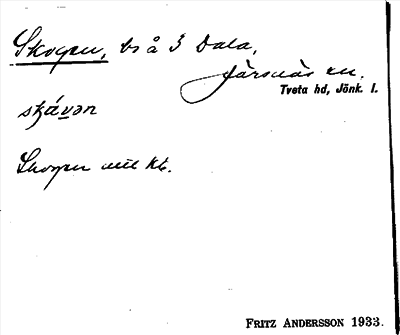 Skogen, bs å 3 Dala,
Järsnäs sn.
Tveta hd, Jönk. l.
skávən
Skogen enl kb.
FRITZ ANDERSSON 1933.